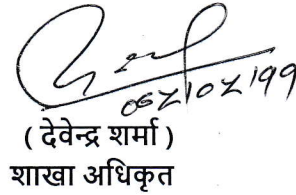 06/10/199
( देवेन्द्र शर्मा )
शाखा अधिकृत